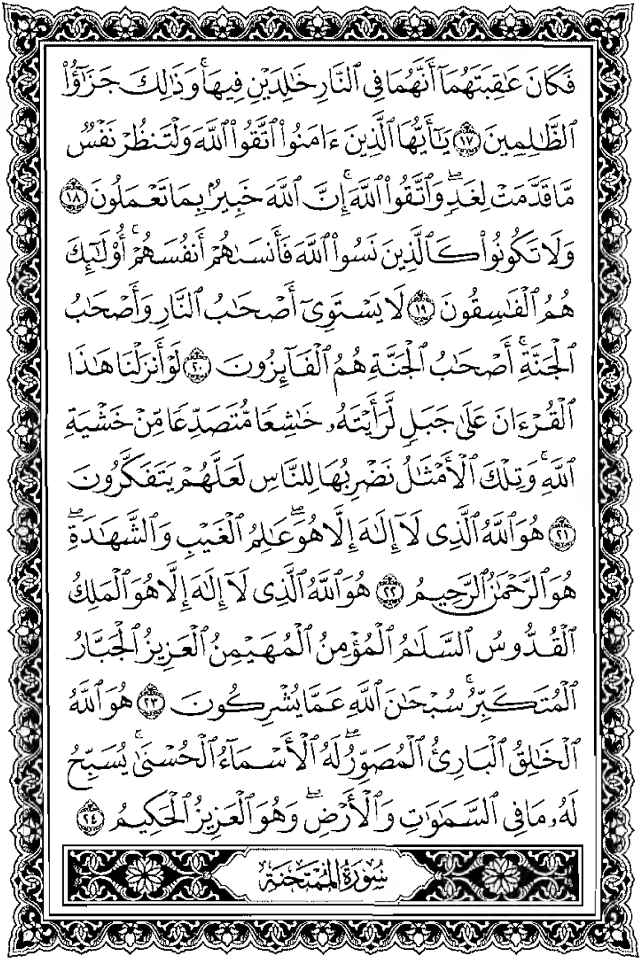 فَكَانَ عَٰقِبَتَهُمَآ أَنَّهُمَا فِي ٱلنَّارِ خَٰلِدَيْنِ فِيهَاۚ وَذَٰلِكَ جَزَٰٓؤُا۟
ٱلظَّٰلِمِينَ ١٧ يَٰٓأَيُّهَا ٱلَّذِينَ ءَامَنُوا۟ ٱتَّقُوا۟ ٱللَّهَ وَلْتَنظُرْ نَفْسٌ
مَّا قَدَّمَتْ لِغَدٍۖ وَٱتَّقُوا۟ ٱللَّهَۚ إِنَّ ٱللَّهَ خَبِيرٌۢ بِمَا تَعْمَلُونَ ١٨
وَلَا تَكُونُوا۟ كَٱلَّذِينَ نَسُوا۟ ٱللَّهَ فَأَنسَىٰهُمْ أَنفُسَهُمْۚ أُو۟لَٰٓئِكَ
هُمُ ٱلْفَٰسِقُونَ ١٩ لَا يَسْتَوِىٓ أَصْحَٰبُ ٱلنَّارِ وَأَصْحَٰبُ
ٱلْجَنَّةِۚ أَصْحَٰبُ ٱلْجَنَّةِ هُمُ ٱلْفَآئِزُونَ ٢٠ لَوْ أَنزَلْنَا هَٰذَا
ٱلْقُرْءَانَ عَلَىٰ جَبَلٍ لَّرَأَيْتَهُۥ خَٰشِعًا مُّتَصَدِّعًا مِّنْ خَشْيَةِ
ٱللَّهِۚ وَتِلْكَ ٱلْأَمْثَٰلُ نَضْرِبُهَا لِلنَّاسِ لَعَلَّهُمْ يَتَفَكَّرُونَ
٢١ هُوَ ٱللَّهُ ٱلَّذِى لَآ إِلَٰهَ إِلَّا هُوَۖ عَٰلِمُ ٱلْغَيْبِ وَٱلشَّهَٰدَةِۖ
هُوَ ٱلرَّحْمَٰنُ ٱلرَّحِيمُ ٢٢ هُوَ ٱللَّهُ ٱلَّذِى لَآ إِلَٰهَ إِلَّا هُوَ ٱلْمَلِكُ
ٱلْقُدُّوسُ ٱلسَّلَٰمُ ٱلْمُؤْمِنُ ٱلْمُهَيْمِنُ ٱلْعَزِيزُ ٱلْجَبَّارُ
ٱلْمُتَكَبِّرُۚ سُبْحَٰنَ ٱللَّهِ عَمَّا يُشْرِكُونَ ٢٣ هُوَ ٱللَّهُ
ٱلْخَٰلِقُ ٱلْبَارِئُ ٱلْمُصَوِّرُۖ لَهُ ٱلْأَسْمَآءُ ٱلْحُسْنَىٰۚ يُسَبِّحُ
لَهُۥ مَا فِي ٱلسَّمَٰوَٰتِ وَٱلْأَرْضِۖ وَهُوَ ٱلْعَزِيزُ ٱلْحَكِيمُ ٢٤
سُورَةُ ٱلْمُمْتَحَنَةِ